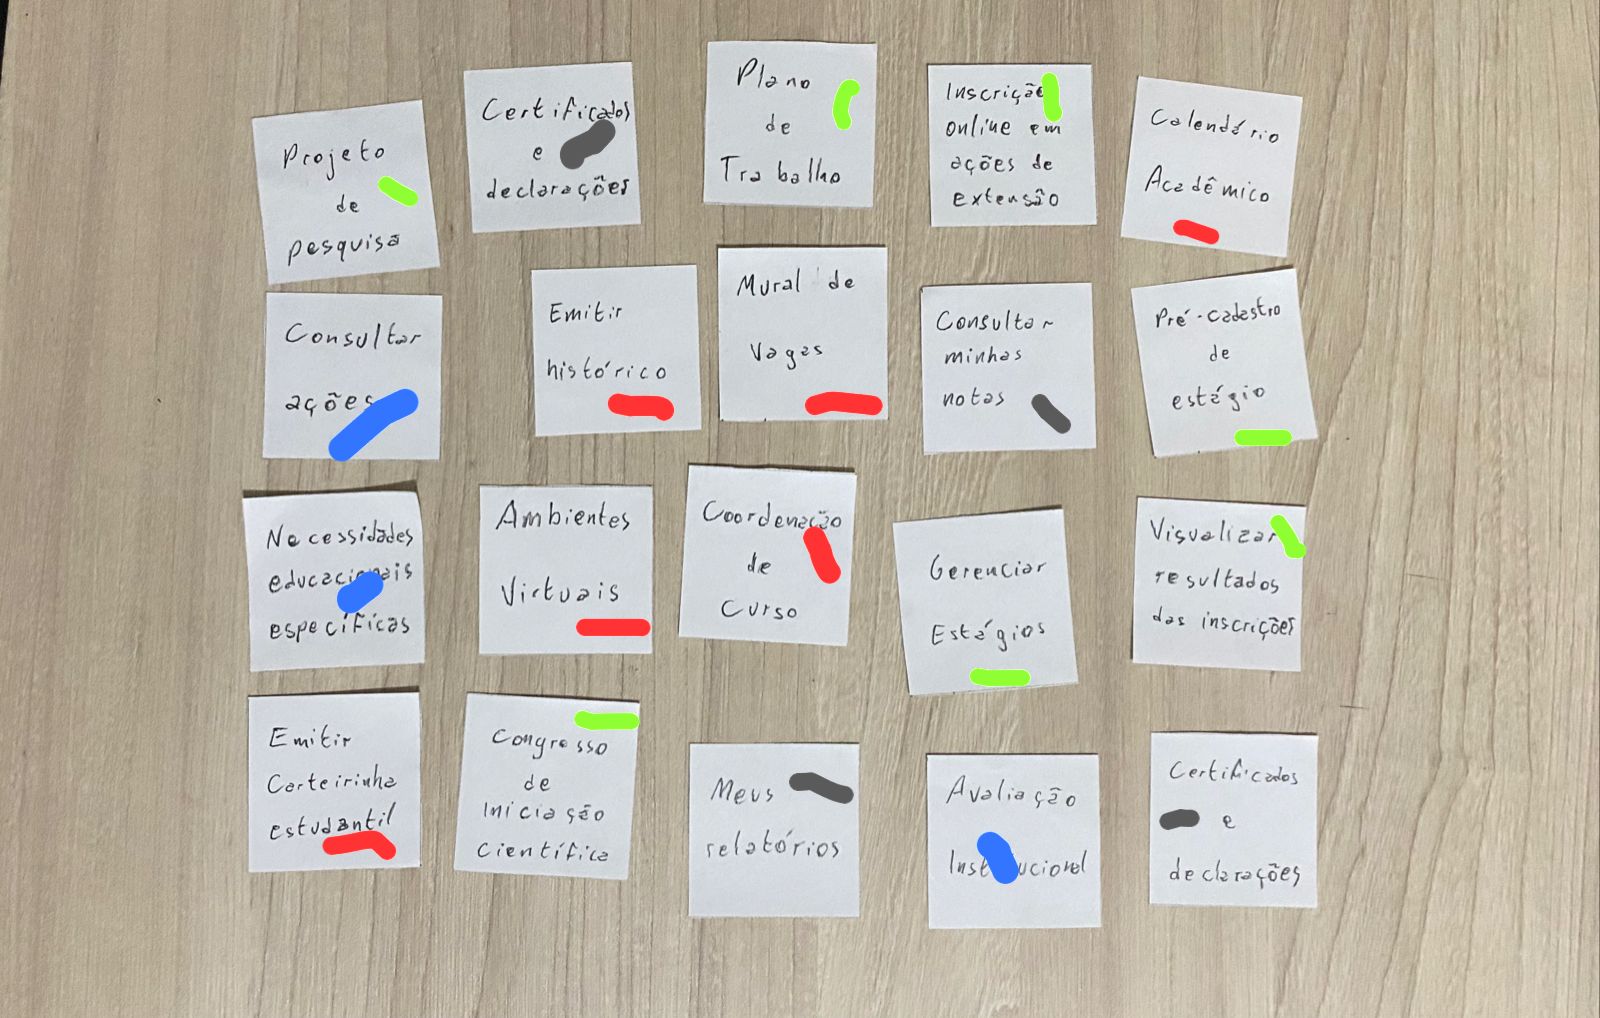 Projeto
de
pesquisa
Certificados
e
declarações
Plano
de
Trabalho
Inscrição
online em
ações de
extensão
Calendário
Acadêmico
Consultar
ações
Emitir
histórico
Mural de
Vagas
Consultar
minhas
notas
Pré-cadastro
de
estágio
Necessidades
educacionais
específicas
Ambientes
Virtuais
Coordenação
de
Curso
Gerenciar
Estágios
Visualizar
resultados
das inscrições
Emitir
Carteirinha
estudantil
Congresso
de
Iniciação
científica
Meus
relatórios
Avaliação
Institucional
Certificados
e
declarações